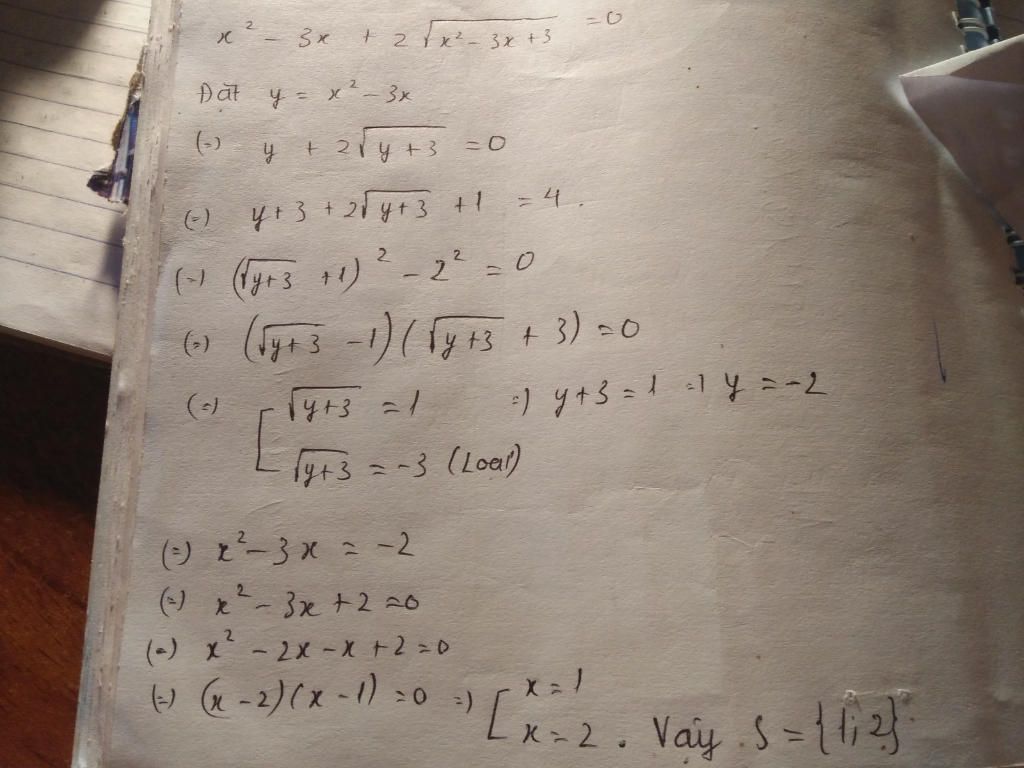 x² - 3x + 2√(x² - 3x + 3) = 0
Đặt y = x² - 3x
(=) y + 2√(y + 3) = 0
(=) y + 3 + 2√(y + 3) + 1 = 4.
(=) (√(y+3) + 1)² - 2² = 0
(=) (√(y+3) - 1)(√(y+3) + 3) = 0
(=) [ √(y+3) = 1 =) y + 3 = 1 =) y = -2
√(y+3) = -3 (Loại)
(=) x² - 3x = -2
(=) x² - 3x + 2 = 0
(=) x² - 2x - x + 2 = 0
(=) (x - 2)(x - 1) = 0 =) [ x = 1
x = 2. Vậy S = {1; 2}